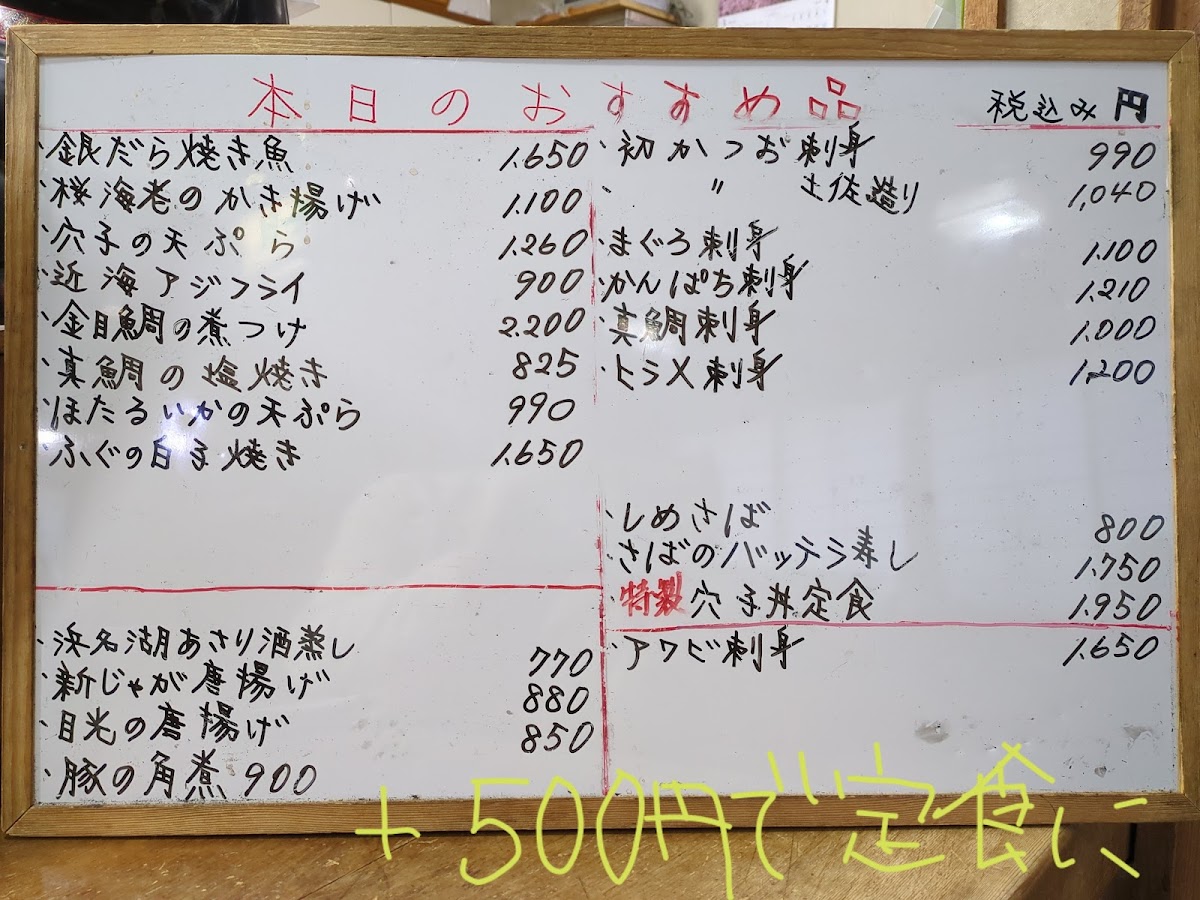 本日のおすすめ品
税込み円
・銀だら焼き魚 1.650
・桜海老のかき揚げ 1.100
・穴子の天ぷら 1.260
・近海アジフライ 900
・金目鯛の煮つけ 2.200
・真鯛の塩焼き 825
・ほたるいかの天ぷら 990
・ふぐの白子焼き 1.650
・浜名湖あさり酒蒸し 770
・新じゃが唐揚げ 880
・目光の唐揚げ 850
・豚の角煮 900
・初かつお刺身 990
・ 〃 土佐造り 1,040
・まぐろ刺身 1.100
・かんぱち刺身 1.210
・真鯛刺身 1.000
・ヒラメ刺身 1.200
・しめさば 800
・さばのバッテラ寿し 1.750
・特製穴子丼定食 1.950
・アワビ刺身 1.650
+500円で定食に